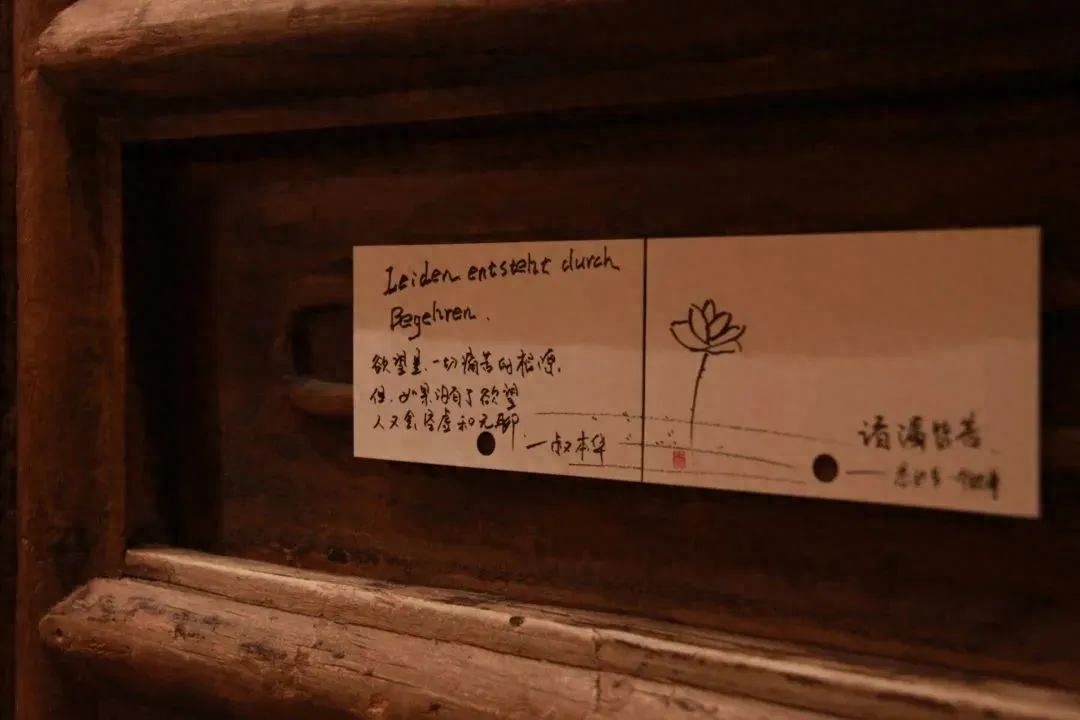 Leiden entsteht durch
Begehren.
欲望是一切痛苦的根源,
但如果没有了欲望
人又会空虚和无聊.
—叔本华
诸漏皆苦.